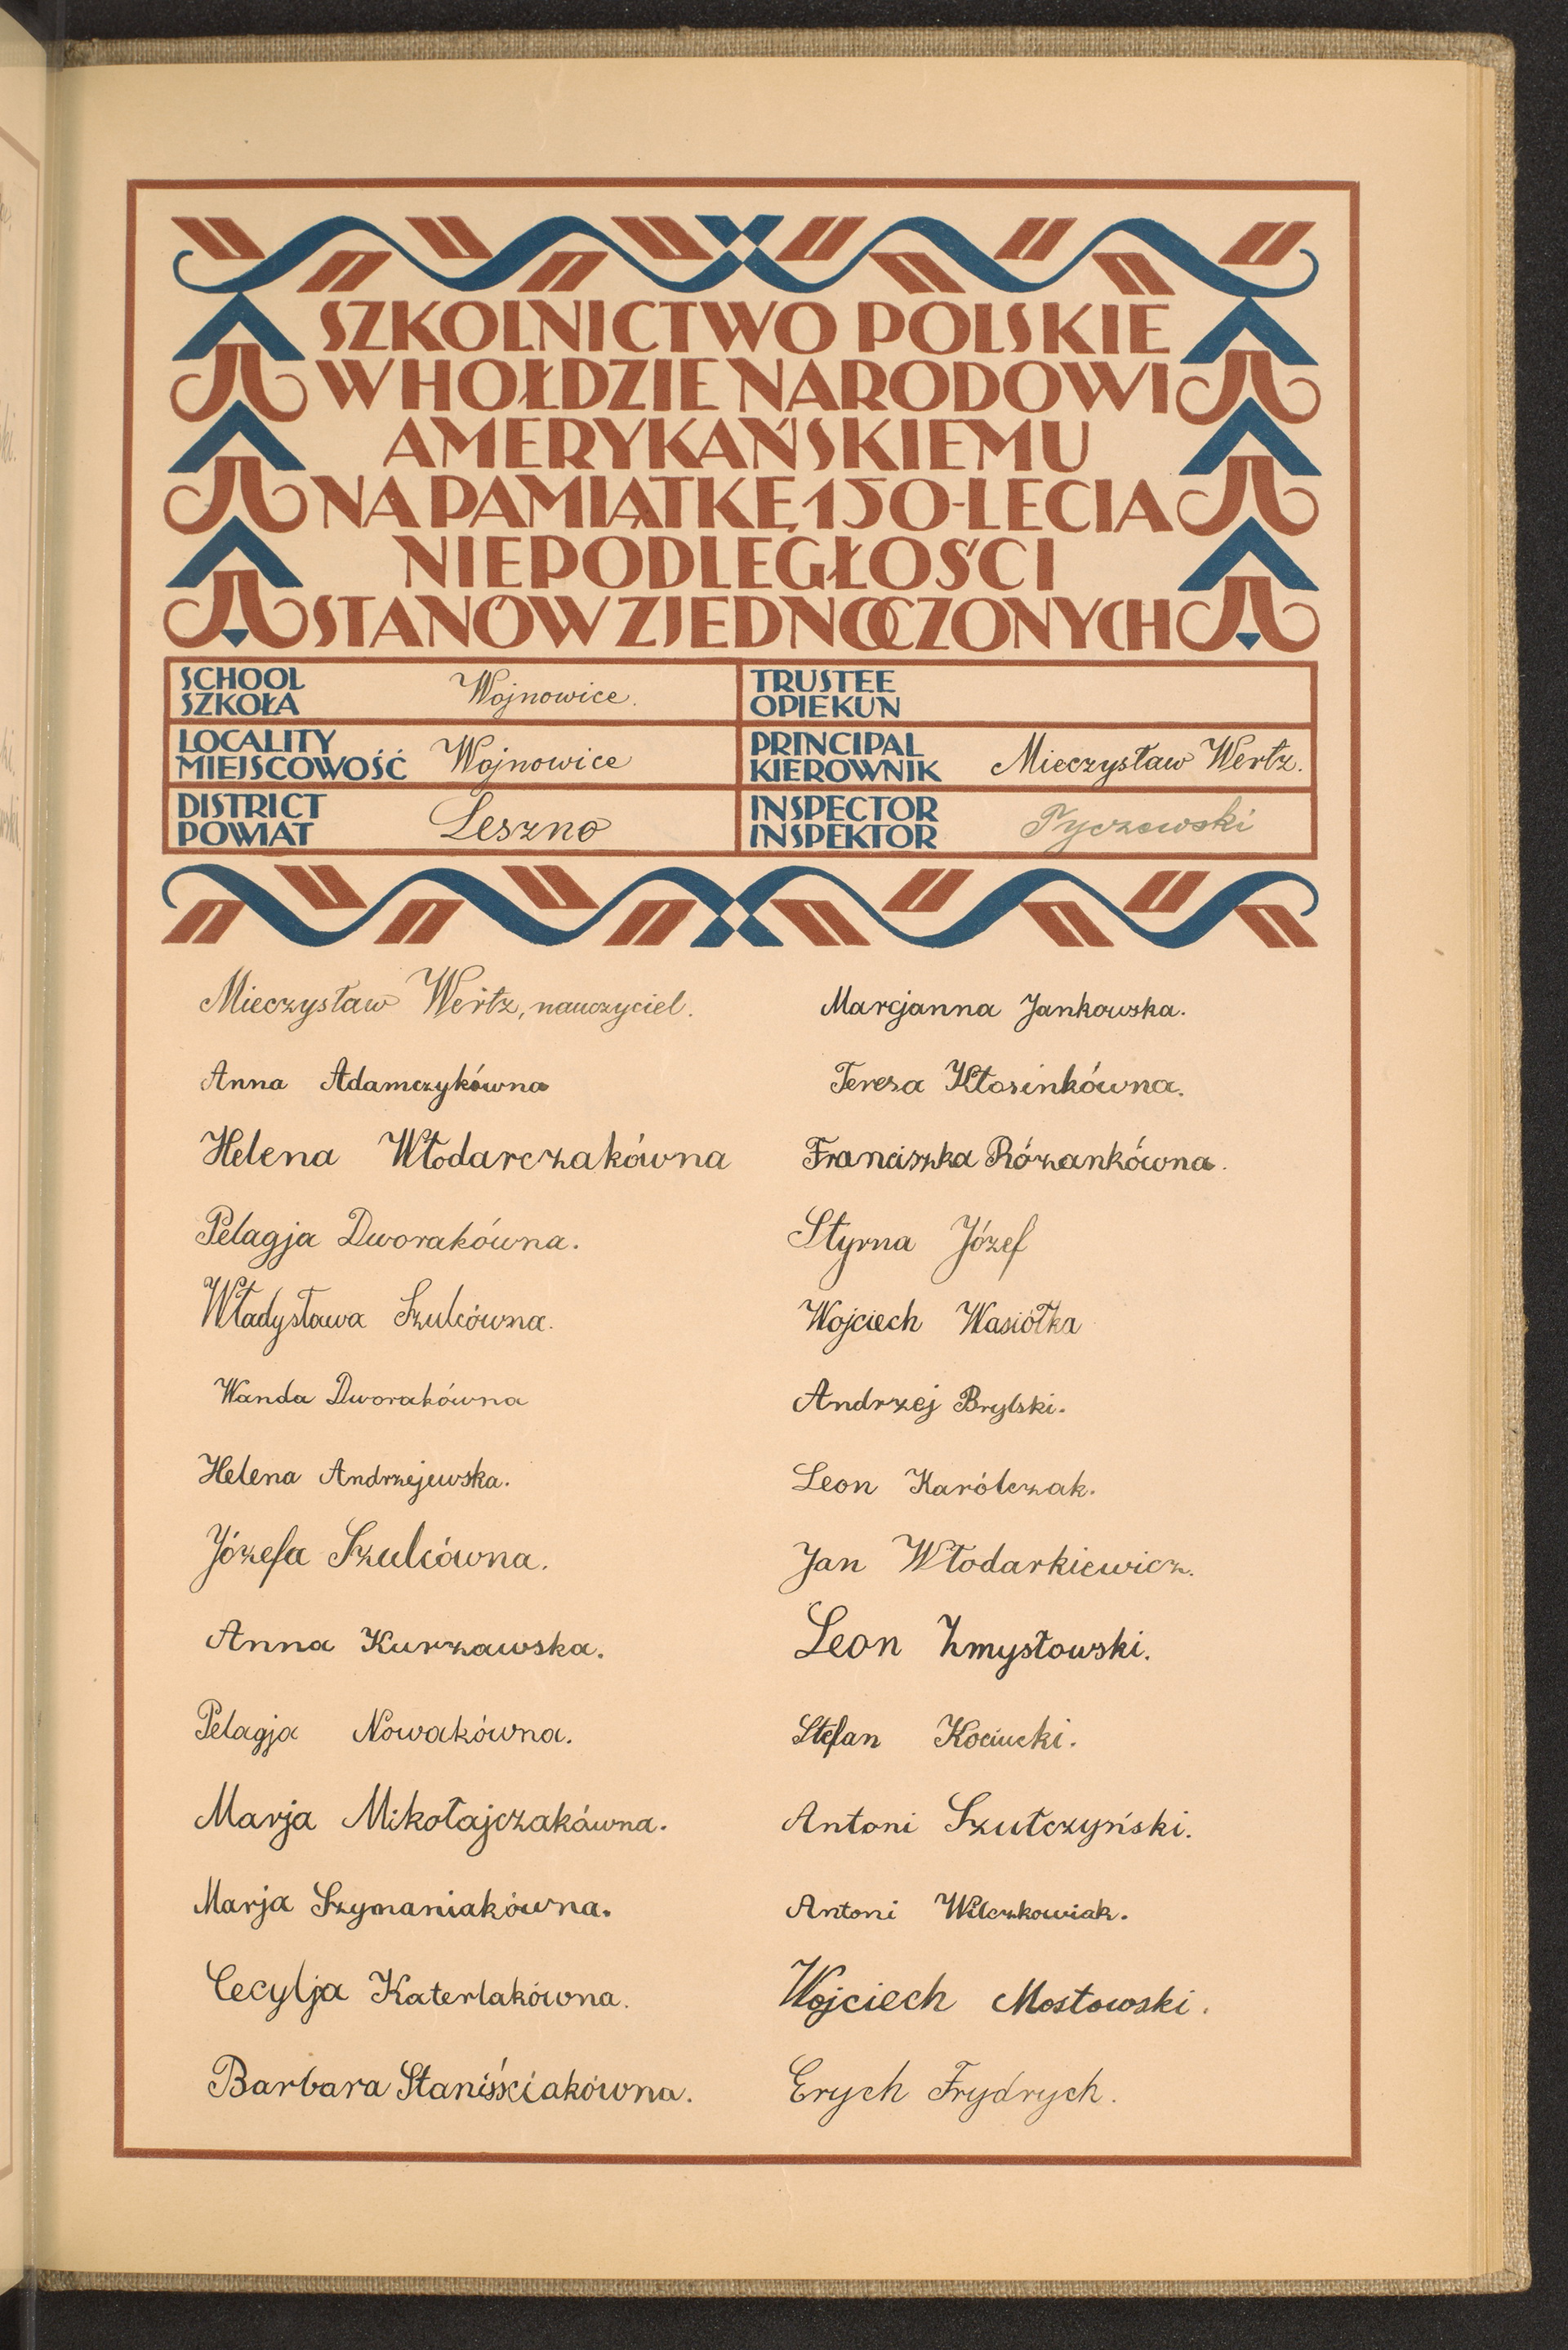 SZKOLNICTWO POLSKIE
W HOŁDZIE NARODOWI
AMERYKAŃSKIEMU
NA PAMIĄTKĘ 150-LECIA
NIEPODLEGŁOŚCI
STANÓW ZJEDNOCZONYCH
SCHOOL
SZKOŁA
Wojnowice.
TRUSTEE
OPIEKUN
LOCALITY
MIEJSCOWOŚĆ
Wojnowice
PRINCIPAL
KIEROWNIK
Mieczysław Wertz.
DISTRICT
POWIAT
Leszno
INSPECTOR
INSPEKTOR
Tyczewski
Mieczysław Wertz, nauczyciel.
Anna Adamczykówna
Helena Włodarczakówna
Pelagja Dworakówna.
Władysława Szulcówna.
Wanda Dworakówna
Helena Andrzejewska.
Józefa Szulcówna.
Anna Kurzawska.
Pelagja Nowakówna.
Marja Mikołajczakówna.
Marja Szymaniakówna.
Cecylja Katerlakówna.
Barbara
Marcjanna Jankowska.
Teresa Kłosinkówna.
Franciszka Rózankówna.
Styrna Józef
Wojciech Wasiółka
Andrzej Brylski.
Leon Karólczak.
Jan Włodarkiewicz.
Leon Zmysłowski.
Stefan Kociucki.
Antoni Szułczyński.
Antoni Wilczkowiak.
Wojciech Mostowski.
Erych Frydrych.